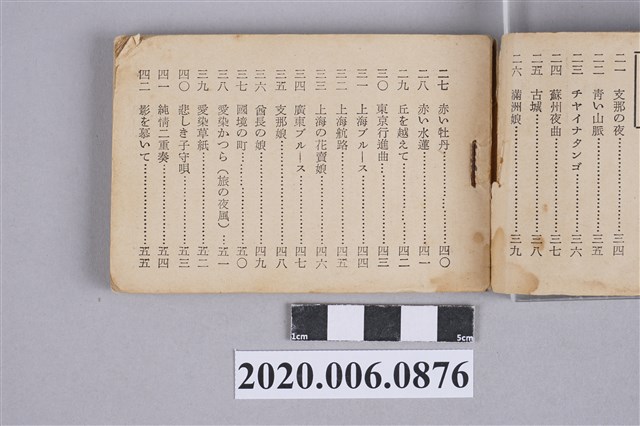 二一 支那の夜………三四
二二 青い山脈………三五
二三 チャイナタンゴ………三六
二四 蘇州夜曲………三七
二五 古城………三八
二六 滿洲娘………三九
二七 赤い牡丹………四〇
二八 赤い水蓮………四一
二九 丘を越えて………四二
三〇 東京行進曲………四三
三一 上海ブルース………四四
三二 上海航路………四五
三三 上海の花賣娘………四六
三四 廣東ブルース………四七
三五 支那娘………四八
三六 酋長の娘………四九
三七 國境の町………五〇
三八 愛染かつら（旅の夜風）…五一
三九 愛染草紙………五二
四〇 悲しき子守唄………五三
四一 純情二重奏………五四
四二 影を慕いて………五五
1cm 5cm
2020.006.0876